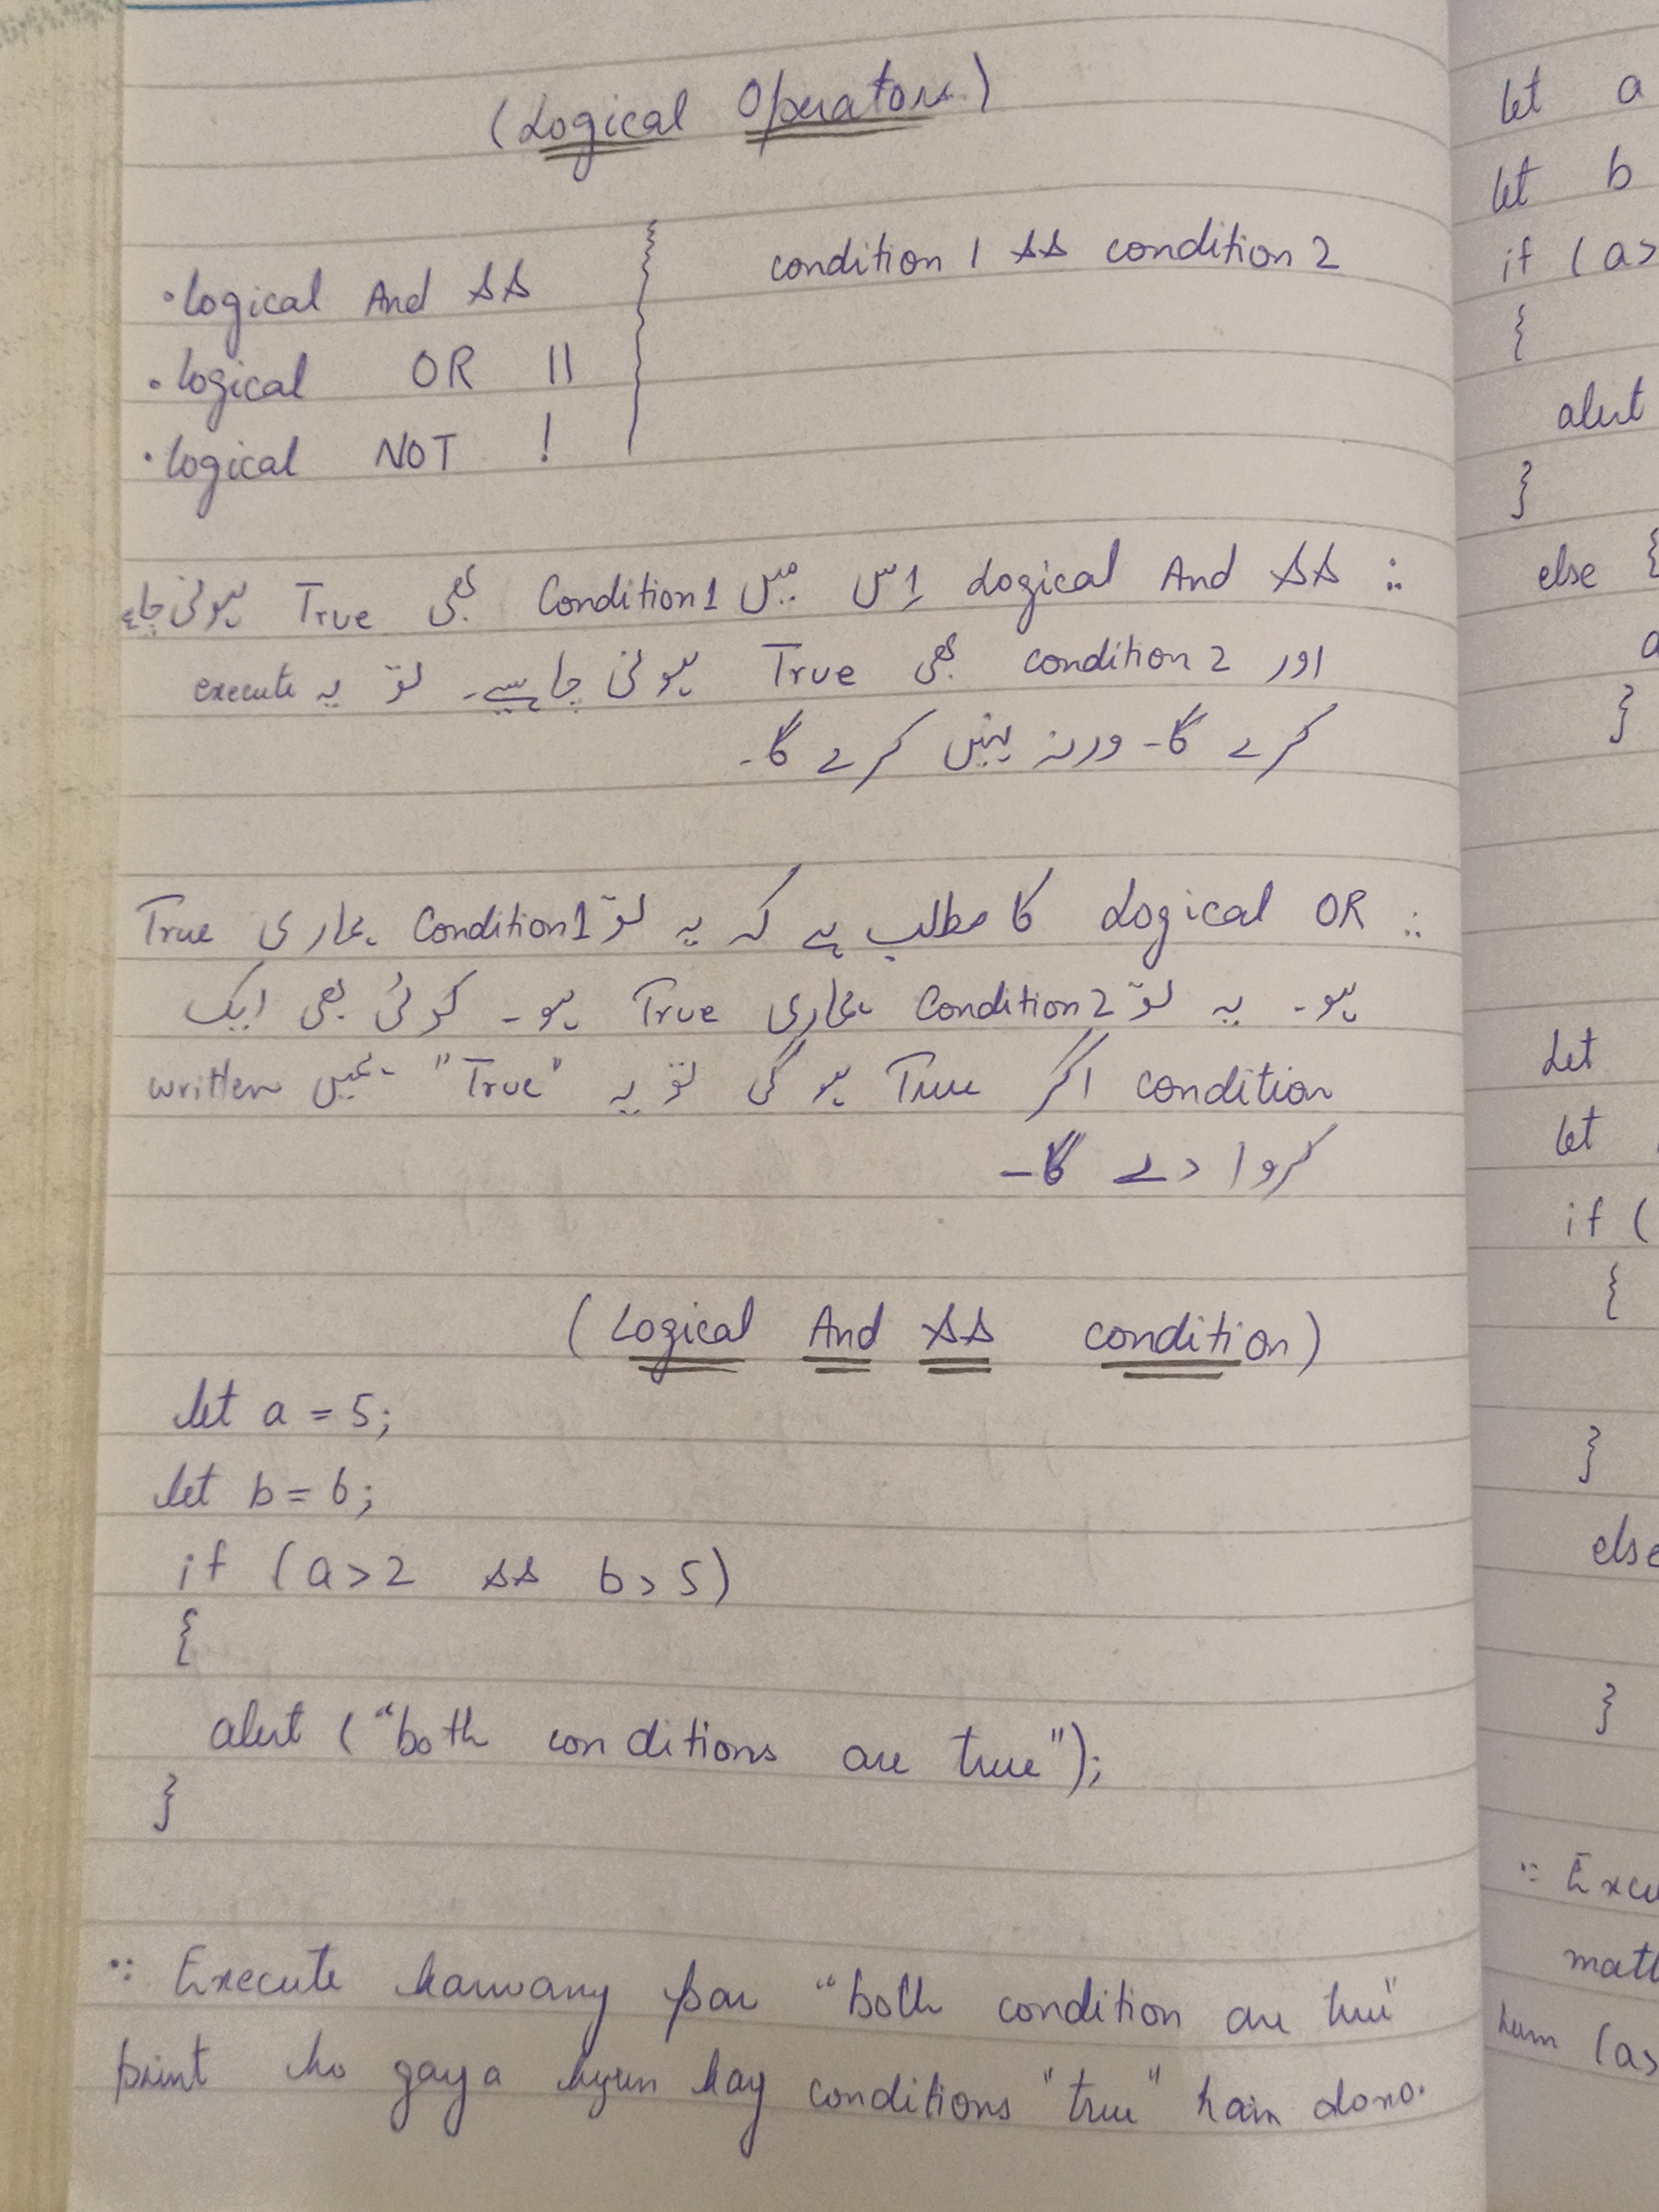 (Logical Operators)
• Logical And &&
• Logical OR ||
• Logical NOT !
condition 1 && condition 2
:: Logical And && اِس میں Condition1 بھی True ہونی چاہئے
اور condition 2 بھی True ہونی چاہیے۔ تو یہ execute
کرے گا۔ ورنہ نہیں کرے گا۔
:: Logical OR کا مطلب ہے کہ یہ تو Condition1 ہماری True
ہو۔ یہ تو Condition2 ہماری True ہو۔ کوئی بھی ایک
condition اگر True ہو گی تو یہ "True" ہمیں written
کروا دے گا۔
(Logical And && condition)
let a = 5;
let b = 6;
if (a>2 && b>5)
{
alert ("both conditions are true");
}
:: Execute karwany par "both condition are true"
print ho gaya kyun kay conditions "true" hain dono.
let a
let b
if (a>
{
alert
}
else {
a
}
Let
let
if (
{
}
else
}
:: Execu
matl
hum (a>